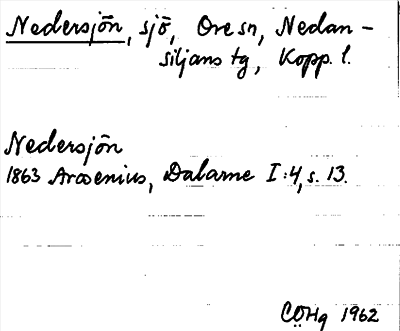 Nedersjön, sjö, Ore sn, Nedan-
siljans tg, Kopp. l.
Nedersjön
1863 Arosenius, Dalarne I:4, s. 13.
CÖHg 1962